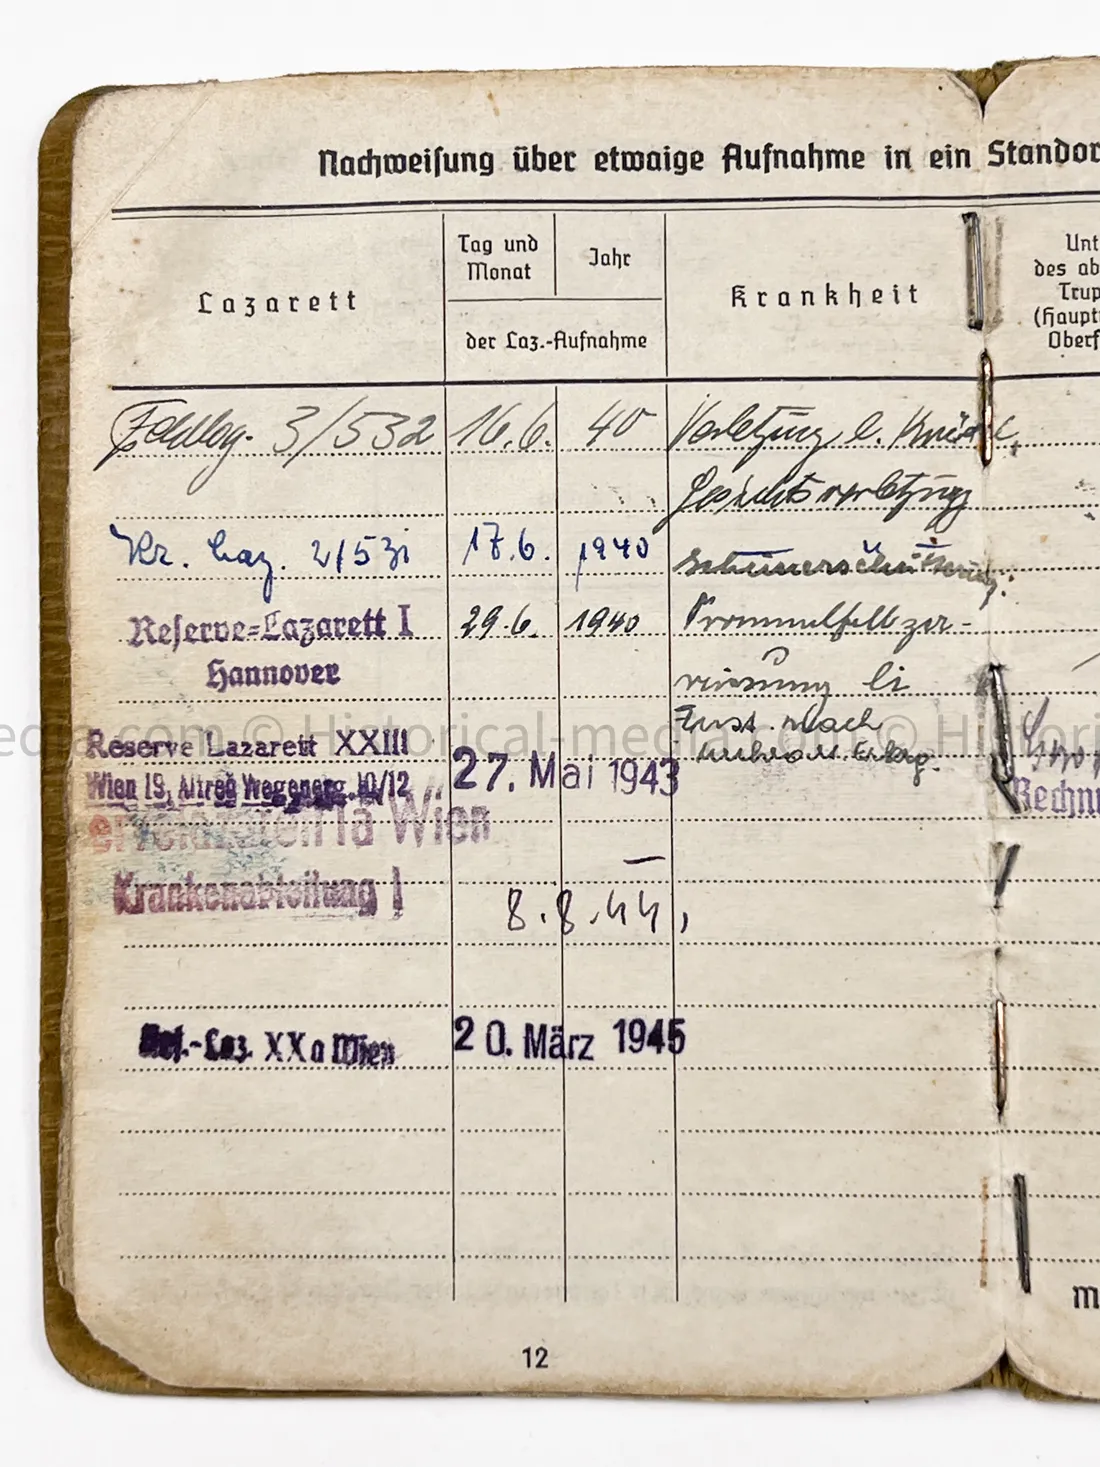 Nachweisung über etwaige Aufnahme in ein Standor
Lazarett
Tag und Monat
Jahr
der Laz.-Aufnahme
Krankheit
Unt
des ab
Trup
(Haupt
Oberf
3/532 16.6. 40 Verletzung l.
Gesichtsverletzung
Kr. Laz. 2/531 17.6. 1940
Reserve-Lazarett I 29.6. 1940 Trommelfellzer-
Hannover
reissung li
Zust. nach
© Historical-media.com © Histori
Reserve Lazarett XXIII
Wien 19, Alfred Wegenerg. 10/12
27. Mai 1943
Rechn
Wien
Krankenabteilung I
8.8.44,
Res.-Laz. XXa Wien 20. März 1945
m
12